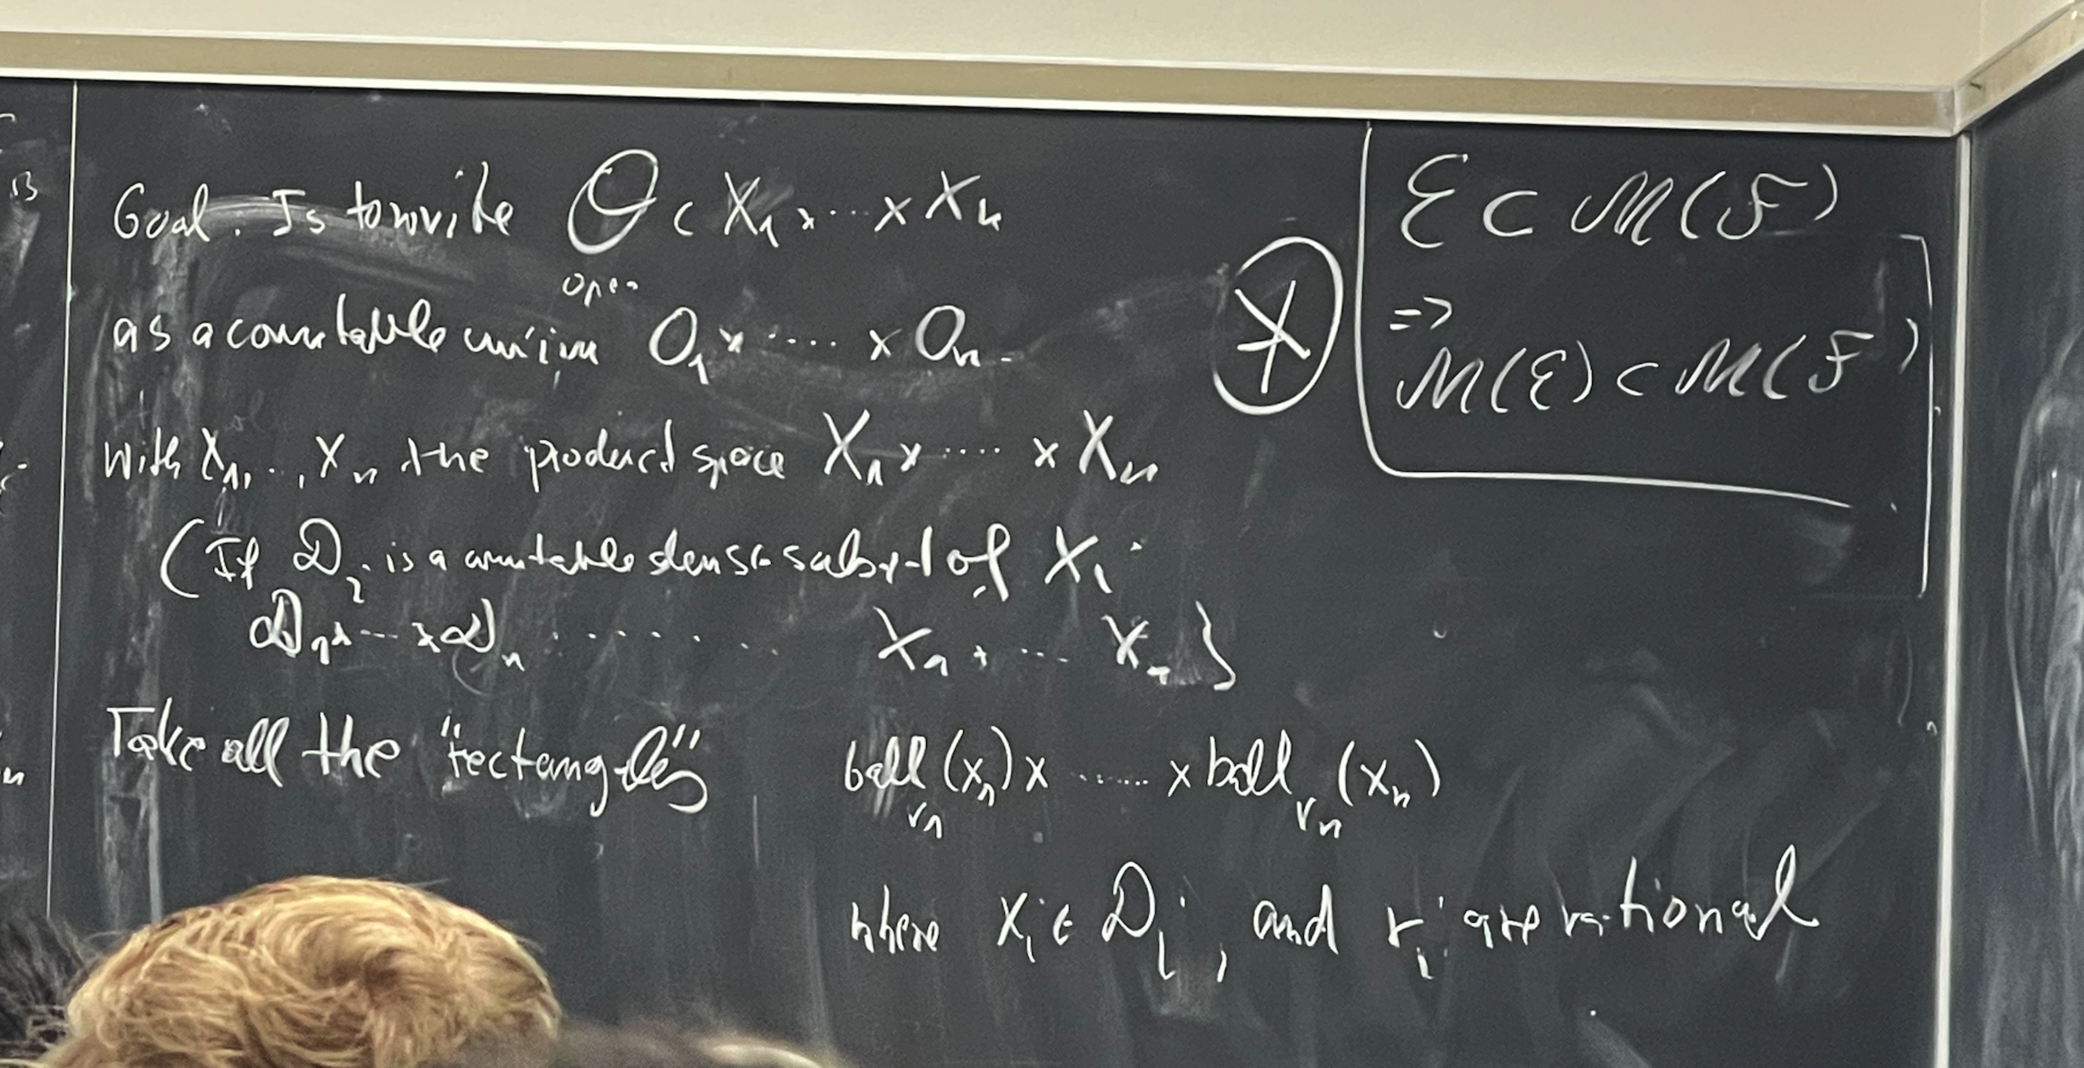 Goal. Is to write O ⊂ X₁ × ··· × Xₙ
open
as a countable union O₁ × ···· × Oₙ.
with X₁, .., Xₙ the product space X₁ × ···· × Xₙ
(If D_i is a countable dense subset of X_i
D₁ × ··· × Dₙ ········ X₁ × ··· Xₙ)
Take all the "rectangles" ball_{r₁}(x₁) × ······ × ball_{rₙ}(xₙ)
where x_i ∈ D_i, and r_i are rational
*
ℰ ⊂ ℳ(ℱ)
⇒
ℳ(ℰ) ⊂ ℳ(ℱ)